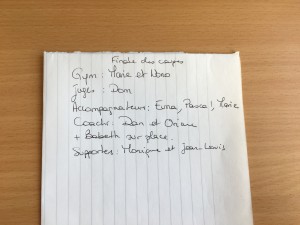 Finale des coupes
Gym : Marie et Nono
Juges : Dom
Accompagnateurs : Ema, Pascal, Marie
Coachs : Dan et Oriane
+ Babeth sur place.
Supporter : Monique et Jean-Louis